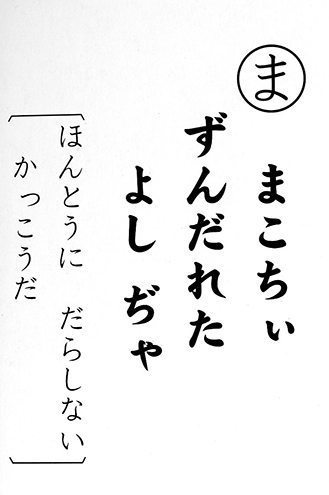 ま
まこちぃ
ずんだれた
よし ぢゃ
ほんとうに だらしない
かっこうだ